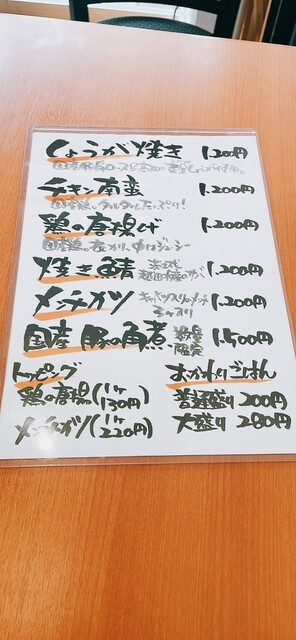 しょうが焼き 1.200円
チキン南蛮 1.200円
国産鶏、タルタルたっぷり!
鶏の唐揚げ 1.200円
国産鶏。表カリッ、中はジューシー
焼き鯖 1.200円
メンチカツ 1.200円
国産 豚の角煮 数量限定 1.500円
トッピング
鶏の唐揚(1ヶ130円)
メンチカツ(1ヶ220円)
おかわりごはん
普通盛り 200円
大盛り 280円